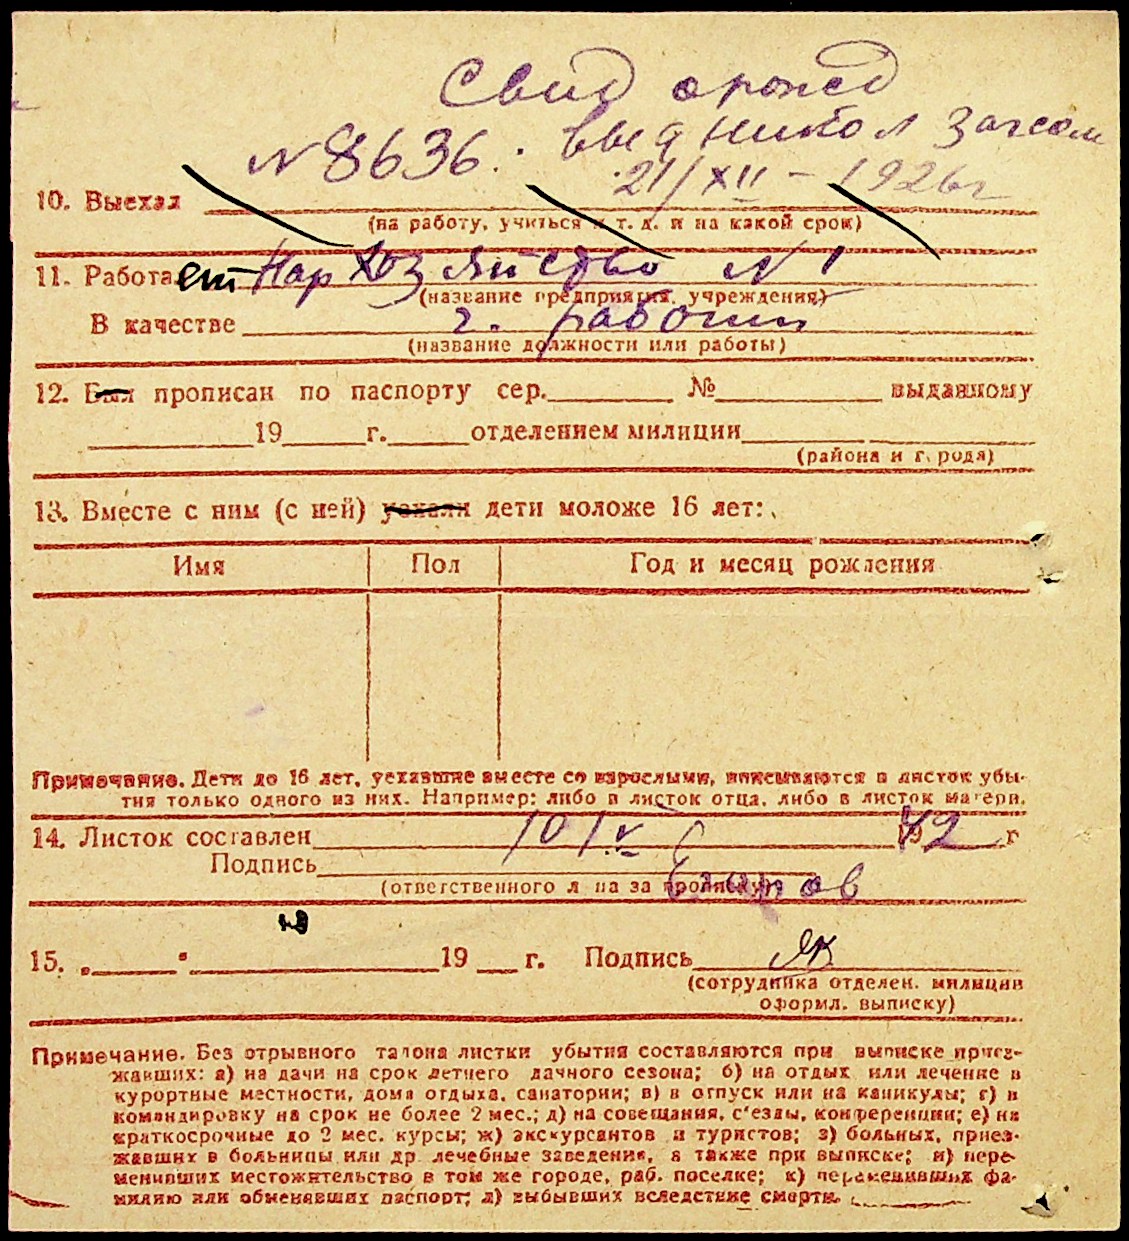 Свид о рожд
N 8636. выд Никол Загсом
21/XII – 1926 г
10. Выехал
(на работу, учиться и т. д. и на какой срок)
11. Работает Нархозяйство N 1
(название предприятия, учреждения)
В качестве г. рабочий
(название должности или работы)
12. Был прописан по паспорту сер. № выданному
19 г. отделением милиции
(района и города)
13. Вместе с ним (с ней) уехали дети моложе 16 лет:
Имя Пол Год и месяц рождения
Примечание. Дети до 16 лет, уехавшие вместе со взрослыми, вписываются в листок убы-
тия только одного из них. Например: либо в листок отца, либо в листок матери.
14. Листок составлен 10/V 1942 г
Подпись
(ответственного л на за прописку)
15. „ " 19 г. Подпись
(сотрудника отделен. милиции
оформл. выписку)
Примечание. Без отрывного талона листки убытия составляются при выписке приез-
жавших: а) на дачи на срок летнего дачного сезона; б) на отдых или лечение в
курортные местности, дома отдыха, санатории; в) в отпуск или на каникулы; г) в
командировку на срок не более 2 мес.; д) на совещания, с'езды, конференции; е) на
краткосрочные до 2 мес. курсы; ж) экскурсантов и туристов; з) больных, приез-
жавших в больницы или др. лечебные заведения, а также при выписке; и) пере-
менивших местожительство в том же городе, раб. поселке; к) переменивших фа-
милию или обменявших паспорт; л) выбывших вследствие смерти.